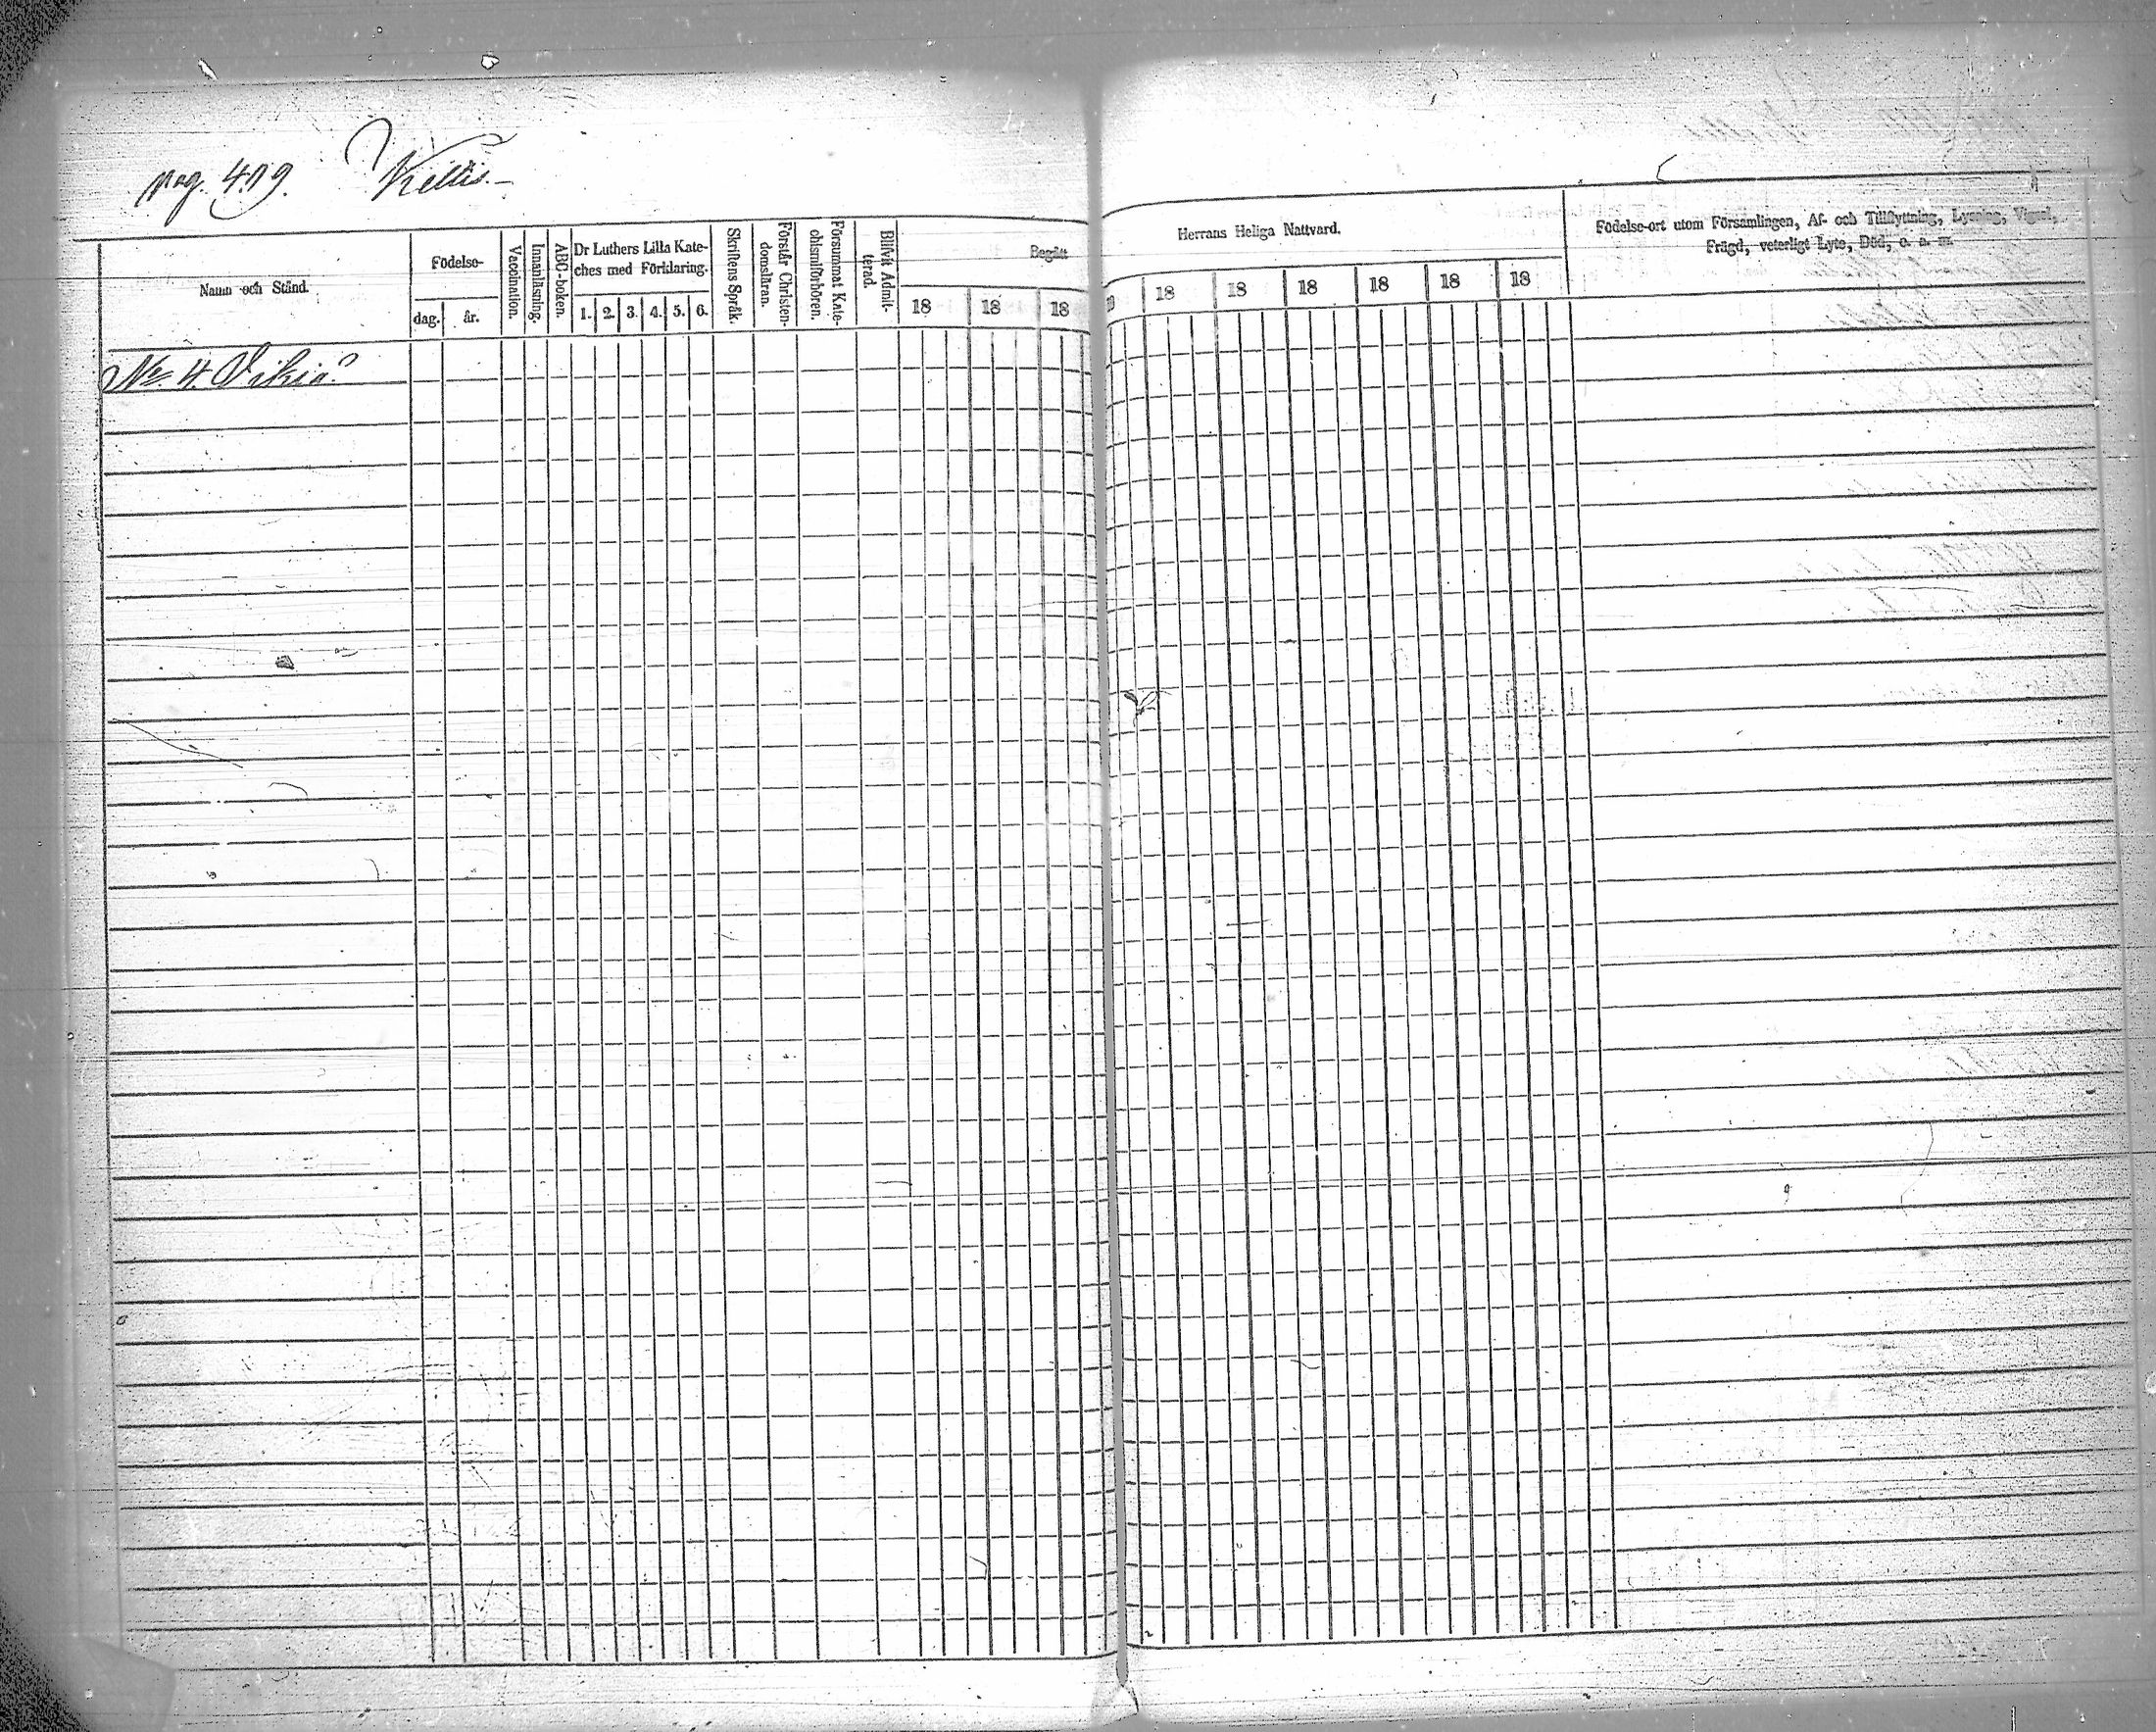 pag. 419. Kellis.
Namn och Stånd.
Födelse-
dag. år.
Vaccination.
Innanläsning.
ABC-boken.
Dr Luthers Lilla Kate-
ches med Förklaring.
1. 2. 3. 4. 5. 6.
Skriftens Språk.
Förstår Christen-
domsläran.
Försummat Kate-
chismiförhören.
Blifvit Admit-
terad.
Begått
18 18 18
Herrans Heliga Nattvard.
18 18 18 18 18 18
Födelse-ort utom Församlingen, Af- och Tillflyttning, Lysning, Vigsel,
Frägd, veterligt Lyte, Död, o. s. m.
No 4